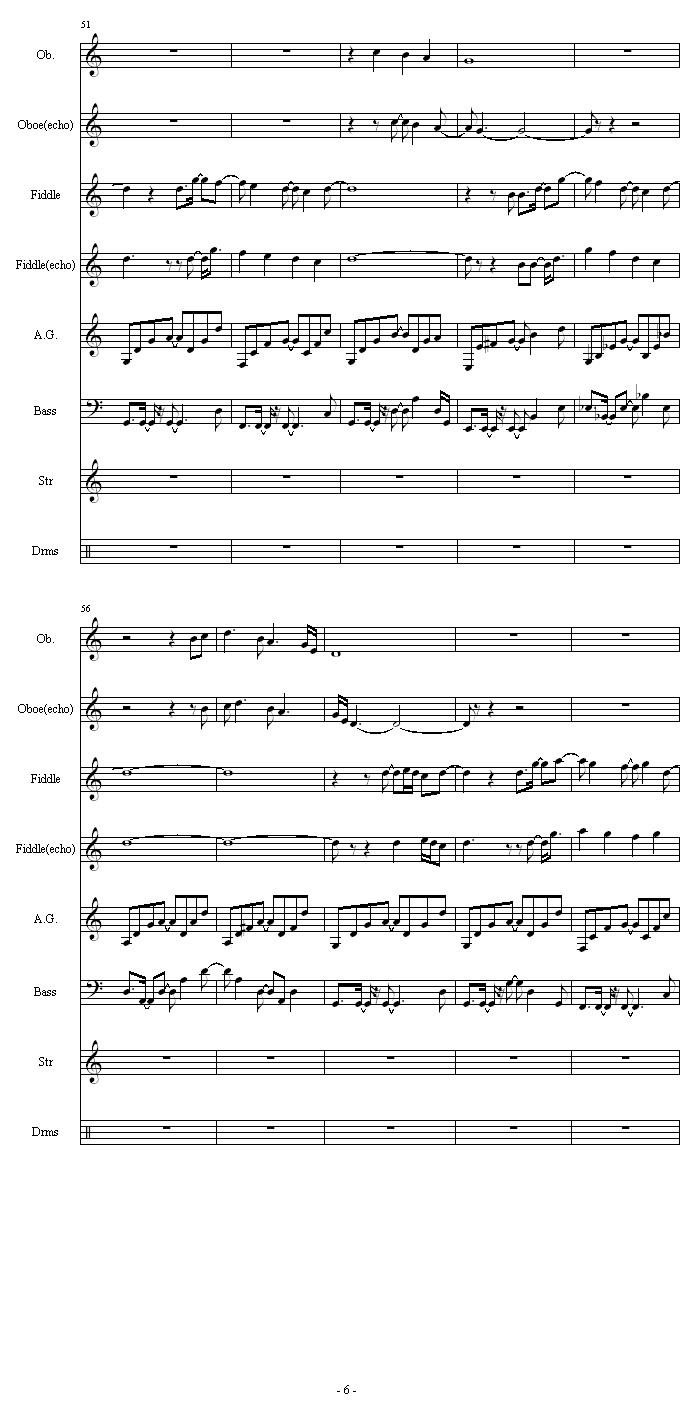 51
Ob.
Oboe(echo)
Fiddle
Fiddle(echo)
A.G.
Bass
Str
Drms
56
Ob.
Oboe(echo)
Fiddle
Fiddle(echo)
A.G.
Bass
Str
Drms
- 6 -